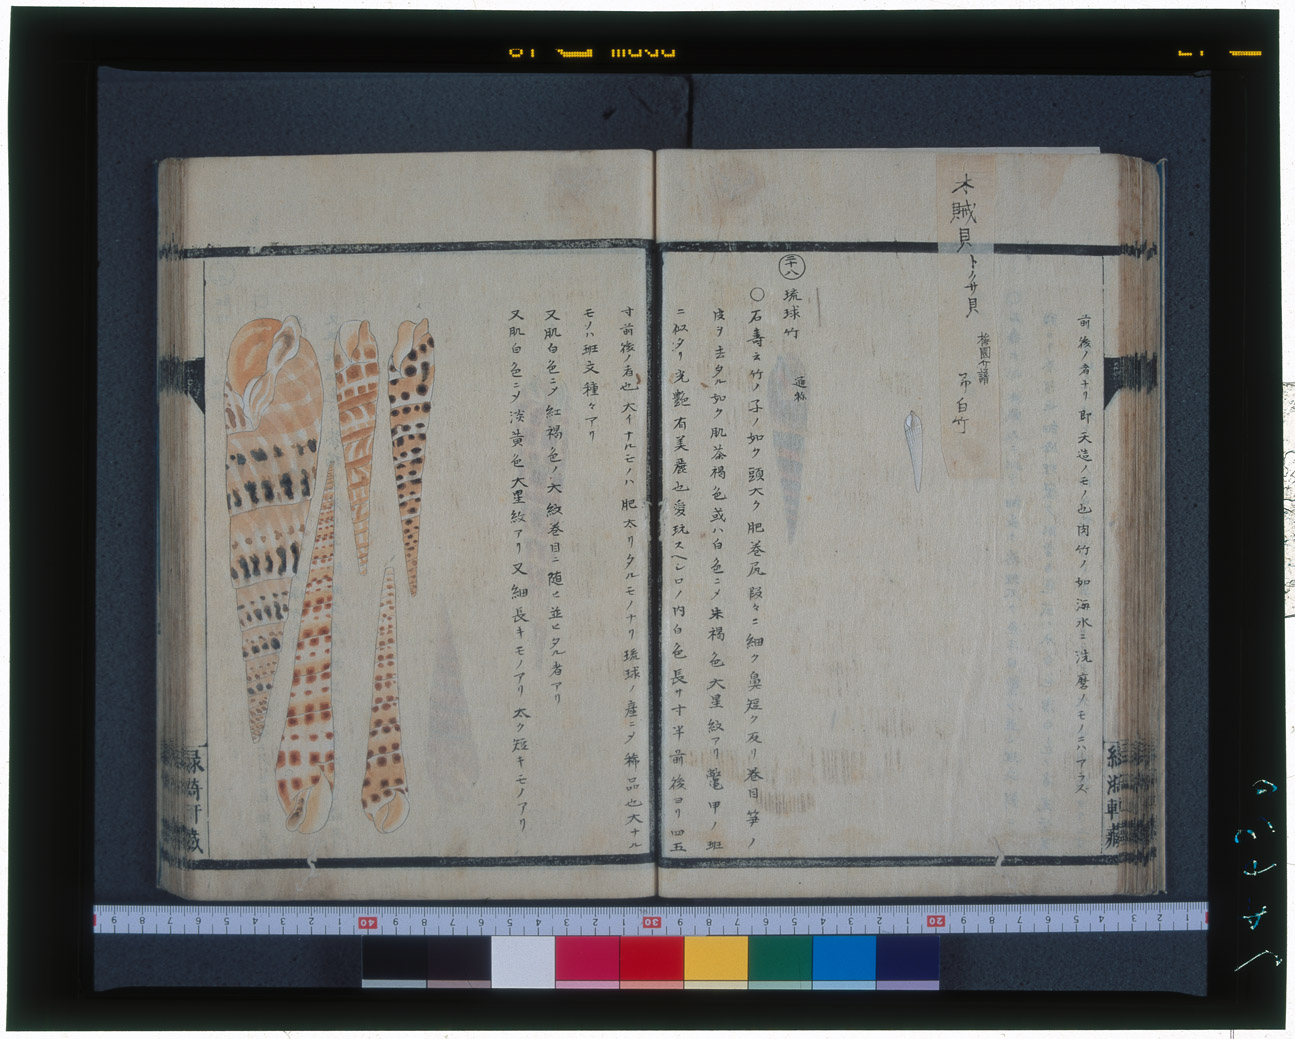 前後ノ者ナリ即天造ノモノ也肉竹ノ如海水ニ洗磨ノモノニハアラズ
木賊貝トクサ貝
梅園介譜
吊白竹
三十八
琉球竹
通称
〇石寿云竹ノ子ノ如ク頭大ク肥巻尻段々ニ細ク鼻短ク反リ巻目笋ノ
皮ヲ去タル如ク肌茶褐色或ハ白色ニメ朱褐色大星紋アリ鼈甲ノ班
ニ似タリ光艶有美麗也愛玩スヘシロノ内白色長サ寸半前後ヨリ四五
寸前後ノ者也大イナルモノハ肥太リタルモノナリ琉球ノ産ニメ稀品也大ナル
モノハ班文種々アリ
又肌白色ニメ紅褐色ノ大紋巻目ニ随ヒ並ヒタル者アリ
又肌白色ニメ淡黄色大星紋アリ又細長キモノアリ太ク短キモノアリ
軒蔵